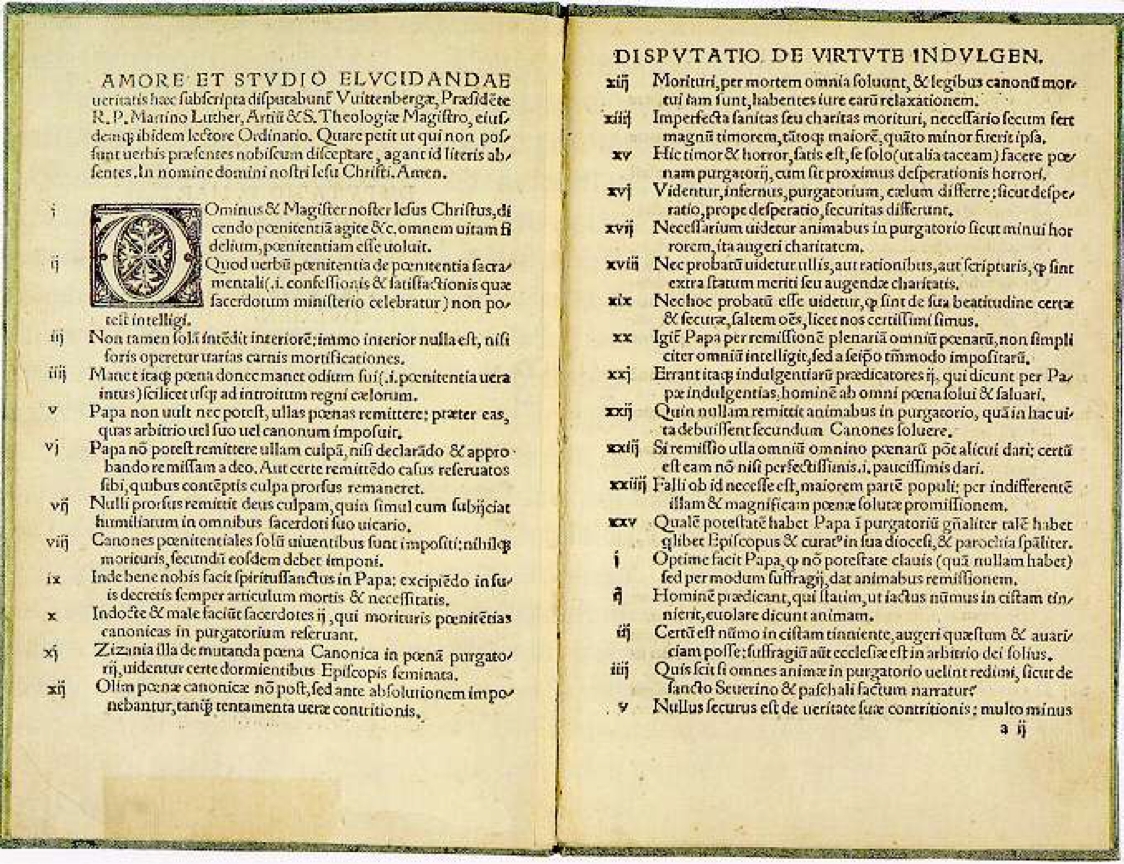 AMORE ET STVDIO ELVCIDANDAE
ueritatis hæc subscripta disputabunt̃ Vuittenbergæ, Præsidẽte
R. P. Martino Luther, Artiũ & S. Theologiæ Magistro, eius-
demq; ibidem lectore Ordinario. Quare petit ut qui non pos-
sunt uerbis præsentes nobiscum disceptare, agant id literis ab-
sentes. In nomine domini nostri Iesu Christi. Amen.
i DOminus & Magister noster Iesus Christus, di
cendo pœnitentiã agite &c. omnem uitam fi
delium, pœnitentiam esse uoluit.
ij Quod uerbũ pœnitentia de pœnitentia sacra-
mentali(.i. confessionis & satisfactionis quæ
sacerdotum ministerio celebratur) non po-
test intelligi.
iij Non tamen solã intẽdit interiorẽ: immo interior nulla est, nisi
foris operetur uarias carnis mortificationes.
iiij Manet itaq; pœna donec manet odium sui(.i. pœnitentia uera
intus) scilicet usq; ad introitum regni cælorum.
v Papa non uult nec potest, ullas pœnas remittere: præter eas,
quas arbitrio uel suo uel canonum imposuit.
vj Papa nõ potest remittere ullam culpã, nisi declarãdo & appro-
bando remissam a deo. Aut certe remittẽdo casus reseruatos
sibi, quibus contẽptis culpa prorsus remaneret.
vij Nulli prorsus remittit deus culpam, quin simul eum subijciat
humiliatum in omnibus sacerdoti suo uicario.
viij Canones pœnitentiales solũ uiuentibus sunt impositi: nihilq;
morituris, secundũ eosdem debet imponi.
ix Inde bene nobis facit spiritussanctus in Papa: excipiẽdo in su-
is decretis semper articulum mortis & necessitatis.
x Indocte & male faciũt sacerdotes ij, qui morituris pœnitẽtias
canonicas in purgatorium reseruant.
xj Zizania illa de mutanda pœna Canonica in pœnã purgato-
rij, uidentur certe dormientibus Episcopis seminata.
xij Olim pœnæ canonicæ nõ post, sed ante absolutionem impo-
nebantur, tanq̃ tentamenta ueræ contritionis.
DISPVTATIO DE VIRTVTE INDVLGEN.
xiij Morituri, per mortem omnia soluunt, & legibus canonũ mor-
tui iam sunt, habentes iure earũ relaxationem.
xiiij Imperfecta sanitas seu charitas morituri, necessario secum fert
magnũ timorem, tãtoq; maiorẽ, quãto minor fuerit ipsa.
xv Hic timor & horror, satis est, se solo (ut alia taceam) facere pœ-
nam purgatorij, cum sit proximus desperationis horrori.
xvj Videntur, infernus, purgatorium, cælum differre: sicut despe-
ratio, prope desperatio, securitas differunt.
xvij Necessarium uidetur animabus in purgatorio sicut minui hor
rorem, ita augeri charitatem.
xviij Nec probatũ uidetur ullis, aut rationibus, aut scripturis, ꝙ sint
extra statum meriti seu augendæ charitatis.
xix Nec hoc probatũ esse uidetur, ꝙ sint de sua beatitudine certæ
& securæ, saltem oẽs, licet nos certissimi simus.
xx Igit̃ Papa per remissionẽ plenariã omniũ pœnarũ, non simpli
citer omniũ intelligit, sed a seip̃o tm̃modo impositarũ.
xxj Errant itaq; indulgentiarũ prædicatores ij, qui dicunt per Pa-
pæ indulgentias, hominẽ ab omni pœna solui & saluari.
xxij Quin nullam remittit animabus in purgatorio, quã in hac ui-
ta debuissent secundum Canones soluere.
xxiij Si remissio ulla omniũ omnino pœnarũ põt alicui dari: certũ
est eam nõ nisi perfectissimis .i. paucissimis dari.
xxiiij Falli ob id necesse est, maiorem partẽ populi: per indifferentẽ
illam & magnificam pœnæ solutæ promissionem.
xxv Qualẽ potestatẽ habet Papa ĩ purgatoriũ gñaliter talẽ habet
q̃libet Episcopus & curatꝰ in sua diocesi, & parochia sp̃aliter.
j Optime facit Papa, ꝙ nõ potestate clauis (quã nullam habet)
sed per modum suffragij, dat animabus remissionem.
ij Hominẽ prædicant, qui statim, ut iactus nũmus in cistam tin-
nierit, euolare dicunt animam.
iij Certũ est nũmo in cistam tinniente, augeri quæstum & auari-
ciam posse: suffragiũ aũt ecclesiæ est in arbitrio dei solius.
iiij Quis scit si omnes animæ in purgatorio uelint redimi, sicut de
sancto Seuerino & paschali factum narratur?
v Nullus securus est de ueritate suæ contritionis: multo minus
a ij